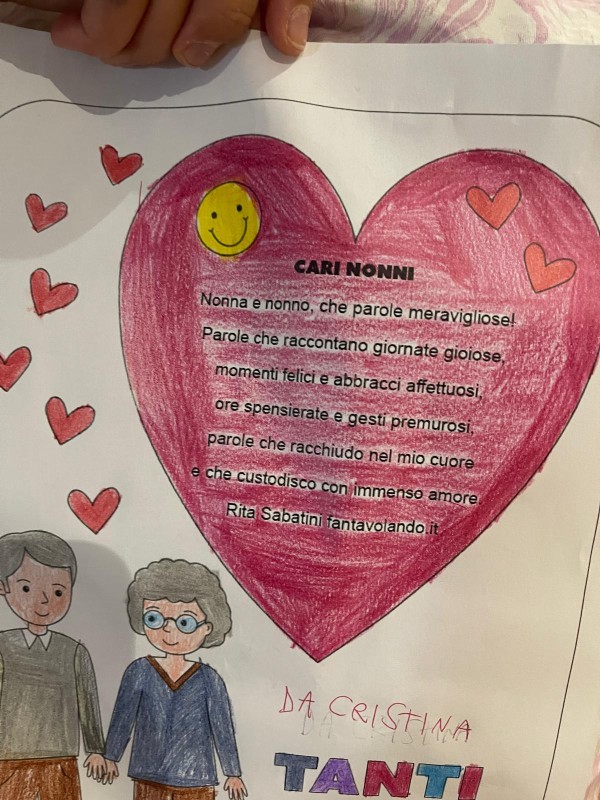 CARI NONNI
Nonna e nonno, che parole meravigliose!
Parole che raccontano giornate gioiose,
momenti felici e abbracci affettuosi,
ore spensierate e gesti premurosi,
parole che racchiudo nel mio cuore
e che custodisco con immenso amore
Rita Sabatini fantavolando.it
DA CRISTINA
TANTI